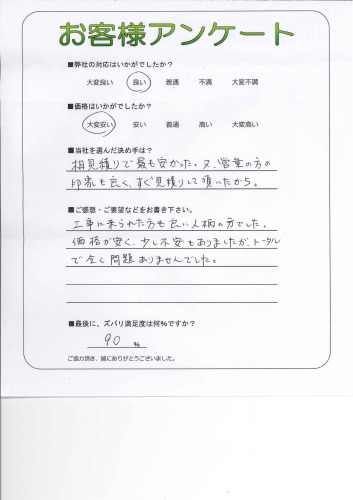 お客様アンケート
■弊社の対応はいかがでしたか?
大変良い 良い 普通 不満 大変不満
■価格はいかがでしたか?
大変安い 安い 普通 高い 大変高い
■当社を選んだ決め手は?
相見積りで最も安かった。又、営業の方の
印象も良く、すぐ見積りして頂いたから。
■ご感想・ご要望などをお書き下さい。
工事に来られた方も良い人柄の方でした。
価格が安く、少し不安もありましたが、トータル
で全く問題ありませんでした。
■最後に、ズバリ満足度は何%ですか?
90 %
ご協力頂き、誠にありがとうございました。